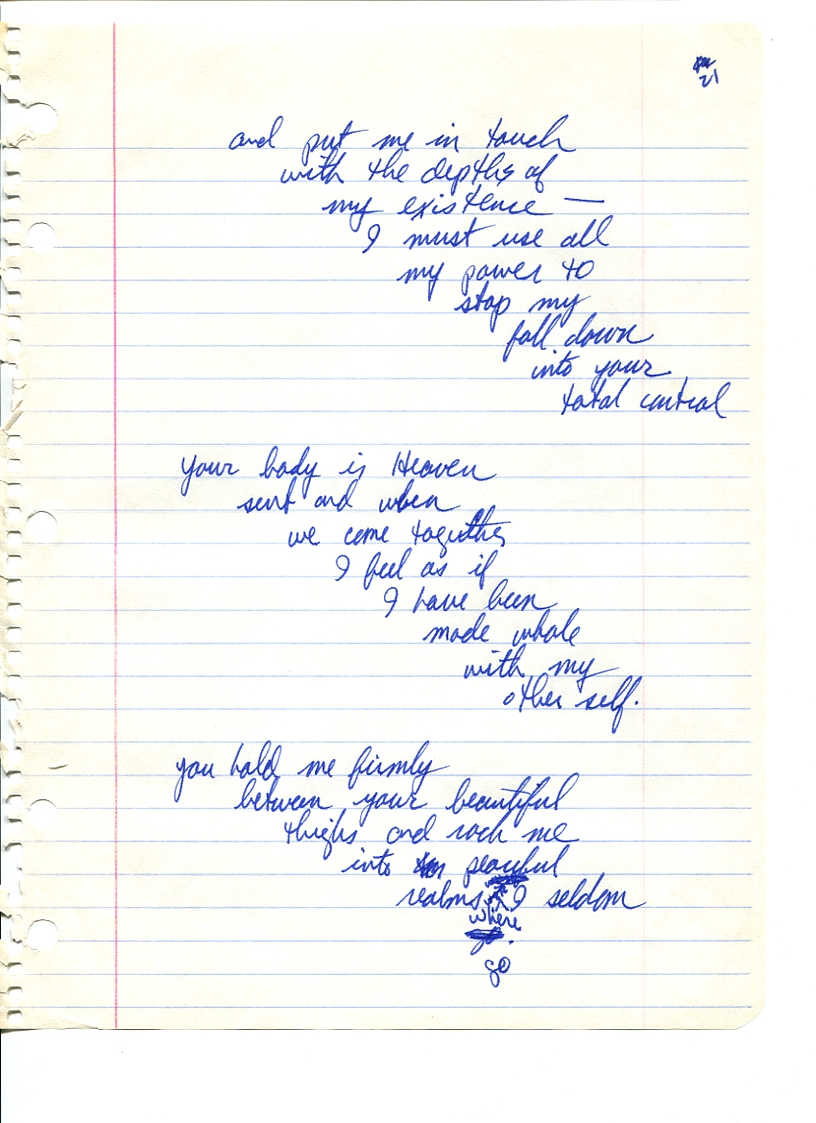 21
and put me in touch
with the depths of
my existence —
I must use all
my power to
stop my
fall down
into your
total control
your body is Heaven
sent and when
we come together
I feel as if
I have been
made whole
with my
other self.
you hold me firmly
between your beautiful
thighs and rock me
into peaceful
realms I seldom
where
go